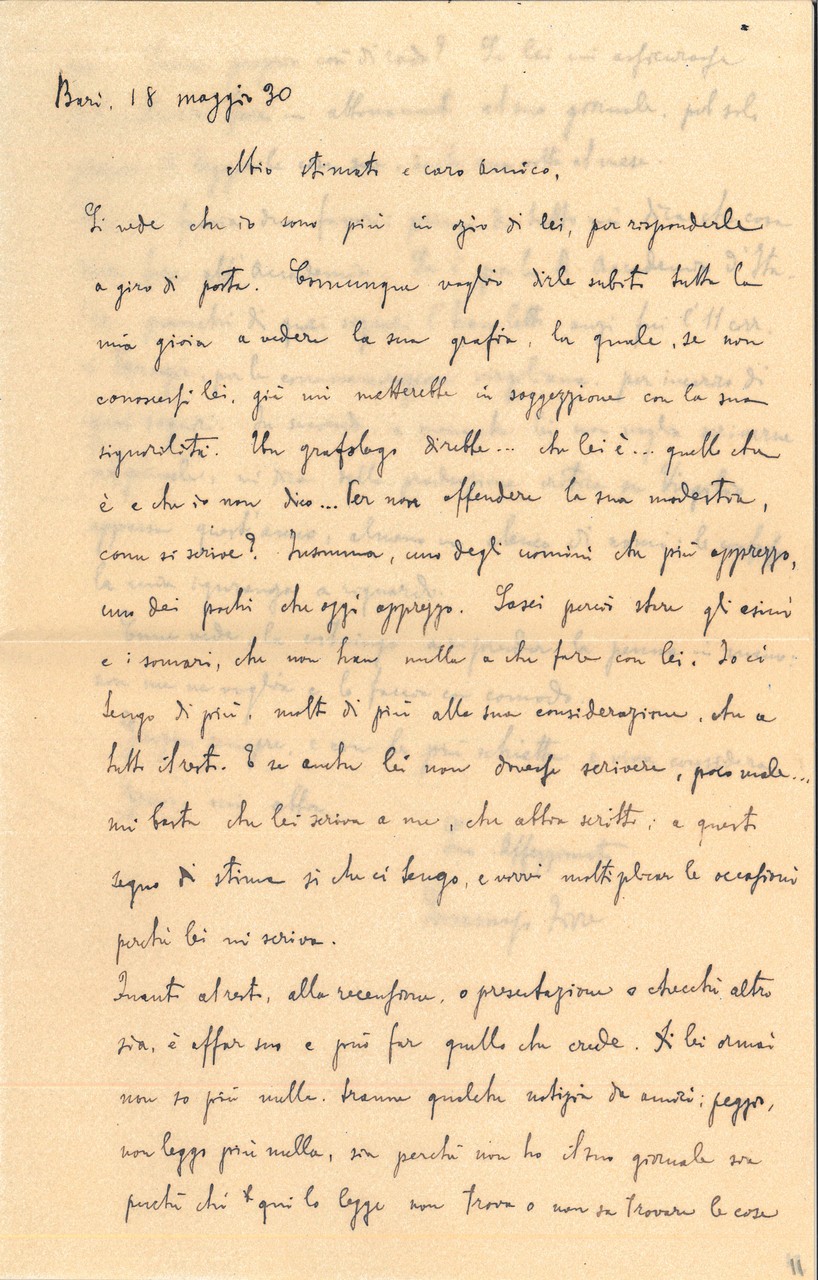 Bari, 18 maggio 30
Mio stimato e caro amico,
Si vede che io sono più in ozio di lei, per risponderle
a giro di posta. Comunque voglio dirle subito tutta la
mia gioia a vedere la sua grafia, la quale, se non
conoscessi lei, già mi metterebbe in soggezzione con la sua
signorilità. Un grafologo direbbe... che lei è... quello che
è e che io non dico... Per non offendere la sua modestia,
come si scrive? Insomma, uno degli uomini che più apprezzo,
uno dei pochi che oggi apprezzo. Lasci perciò stare gli asini
e i somari, che non han nulla a che fare con lei. Io ci
tengo di più, molto di più alla sua considerazione, che a
tutto il resto. E se anche lei non dovesse scrivere, poco male...
mi basta che lei scriva a me, che abbia scritto; a questo
segno di stima sì che ci tengo, e vorrei moltiplicar le occasioni
perché lei mi scriva.
Quanto al resto, alla recensione, o presentazione o checché altro
sia, è affar suo e può far quello che crede. Di lei ormai
non so più nulla, tranne qualche notizia da amici; peggio,
non leggo più nulla, sia perché non ho il suo giornale sia
perché chi qui lo legge non trova o non sa trovare le cose
11